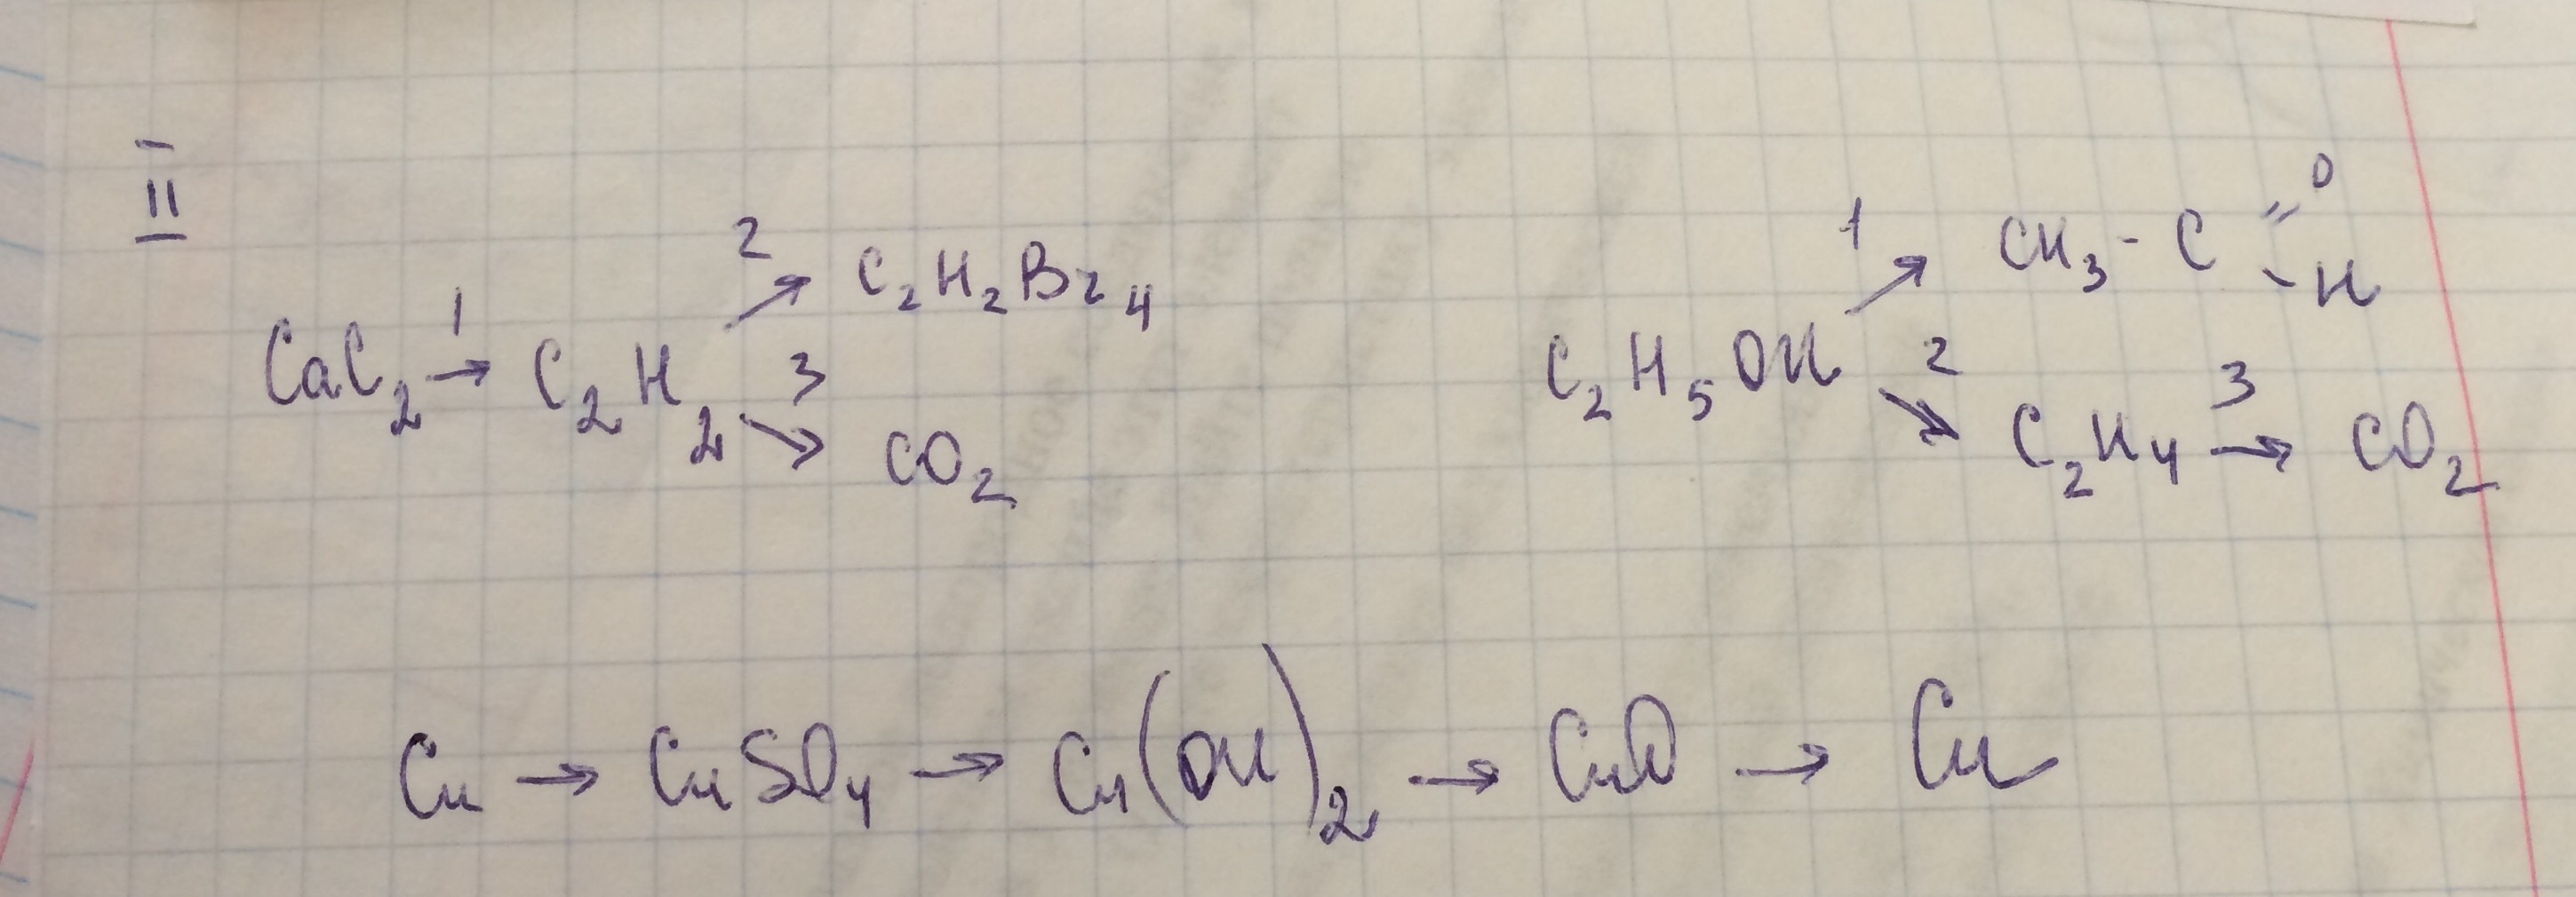 II
CaC₂ →¹ C₂H₂ ↗² C₂H₂Br₄
↘³ CO₂
C₂H₅OH ↗¹ CH₃-C=O
-H
↘² C₂H₄ →³ CO₂
Cu → CuSO₄ → Cu(OH)₂ → CuO → Cu